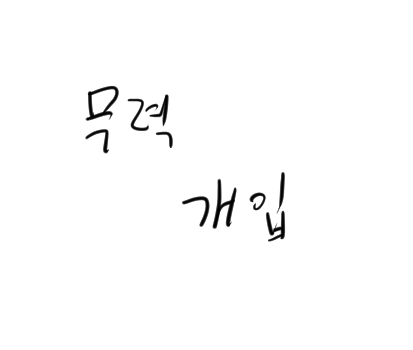 무력
개입